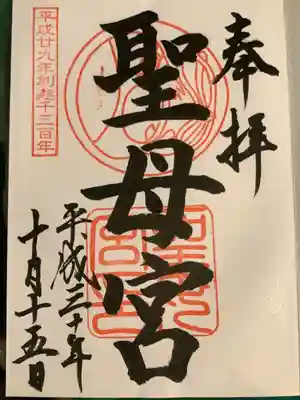 奉拝
聖母宮
平成三十年
十月十五日
平成廿九年創建千三百年